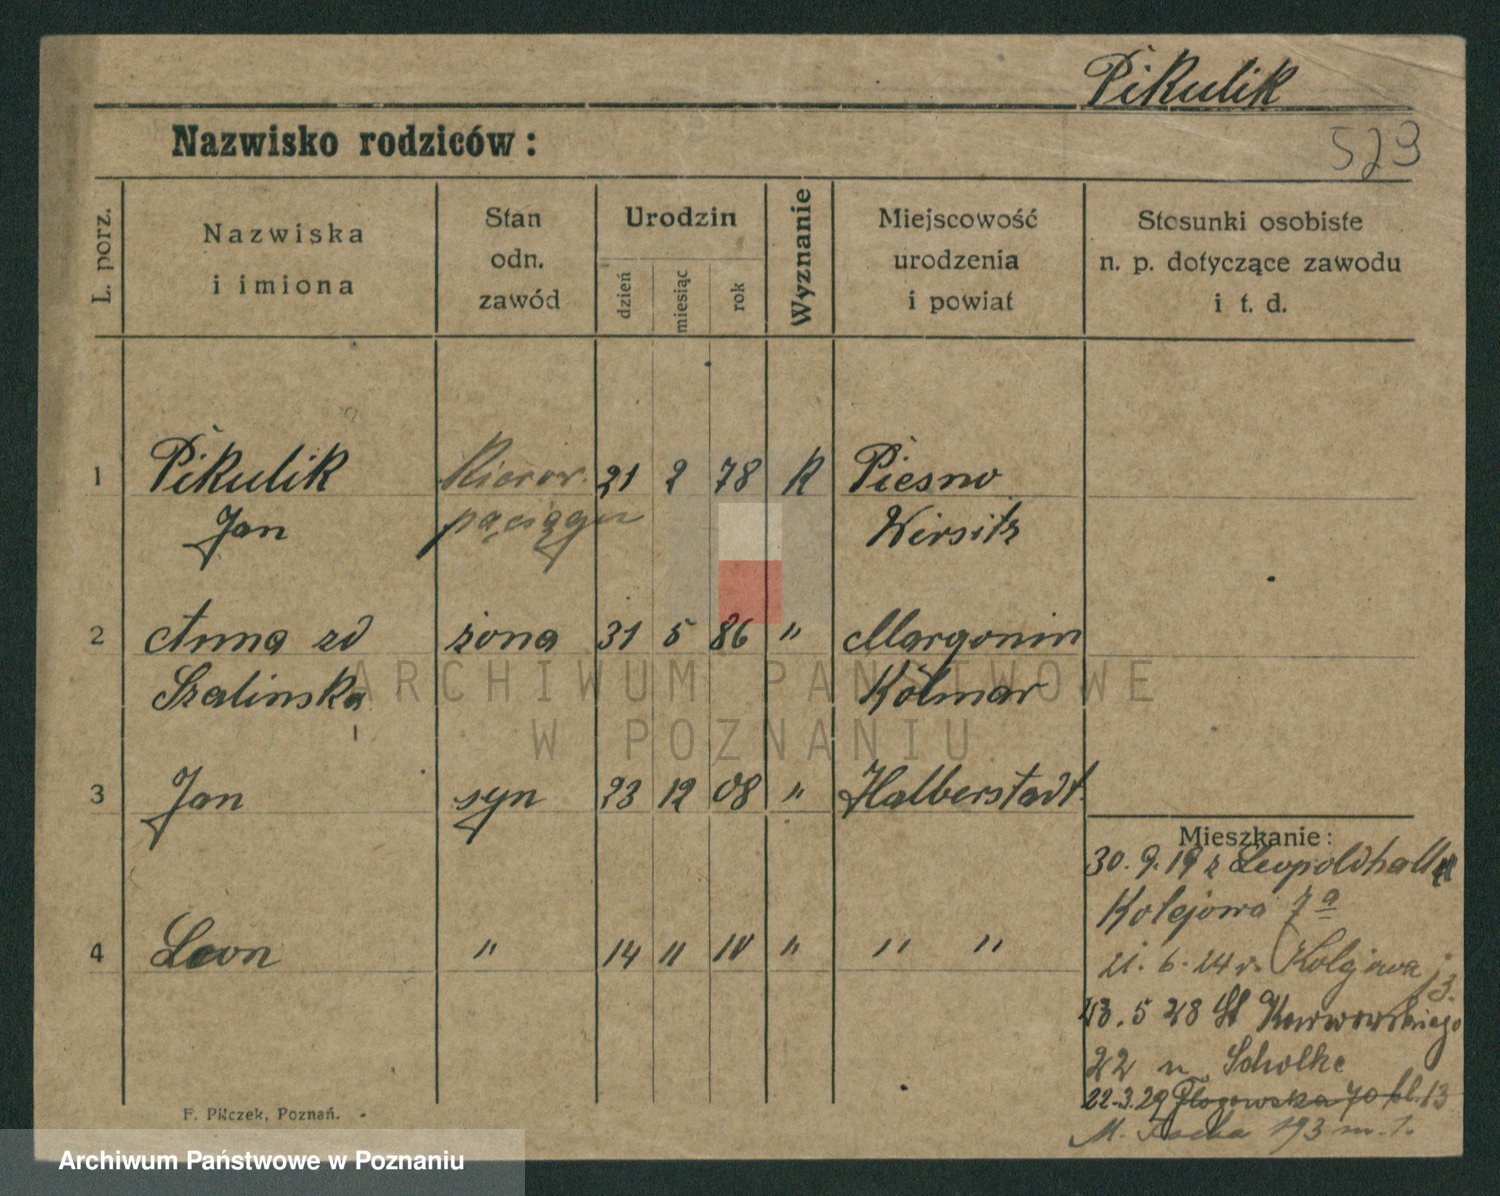 Pikulik
Nazwisko rodziców:
523
L. porz.
Nazwiska
i imiona
Stan
odn.
zawód
Urodzin
dzień
miesiąc
rok
Wyznanie
Miejscowość
urodzenia
i powiat
Stosunki osobiste
n. p. dotyczące zawodu
i t. d.
1 Pikulik Kierow. 21 2 78 K Piesno
Jan pociągu Wirsitz
2 Anna zd żona 31 5 86 " Margonin
Szalinska Kolmar
3 Jan syn 23 12 08 " Halberstadt.
4 Leon " 14 11 10 " " "
Mieszkanie:
30.9.19 z Leopoldhall
Kolejowa 7a
21.6.24 r. Kolejowa
23.5 28 Karwowskiego
22 u Scholke
22.3.29 Głogowska 70 bl. 13
M. Focha 193 m. 1.
F. Pilczek, Poznań.
ARCHIWUM PAŃSTWOWE
W POZNANIU
Archiwum Państwowe w Poznaniu